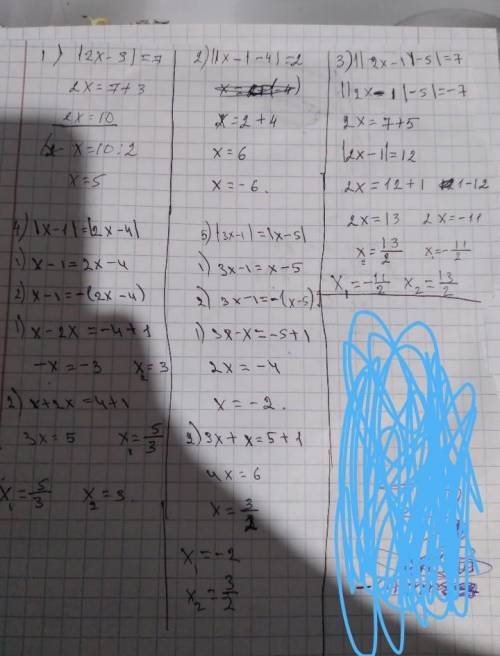 1) |2x-3|=7
2x=7+3
2x=10
x=10:2
x=5
2) ||x-1|-4|=2
x=2+4
x=6
x=-6.
3) ||2x-1|-5|=7
||2x-1|-5|=-7
2x=7+5
|2x-1|=12
2x=12+1 1-12
2x=13 2x=-11
x₂=13/2 x₁=-11/2
x₁=-11/2 x₂=13/2
4) |x-1|=|2x-4|
1) x-1=2x-4
2) x-1=-(2x-4)
1) x-2x=-4+1
-x=-3 x₂=3
2) x+2x=4+1
3x=5 x₁=5/3
x₁=5/3 x₂=3.
5) |3x-1|=|x-5|
1) 3x-1=x-5
2) 3x-1=-(x-5).
1) 3x-x=-5+1
2x=-4
x=-2.
2) 3x+x=5+1
4x=6
x=3/2
x₁=-2
x₂=3/2